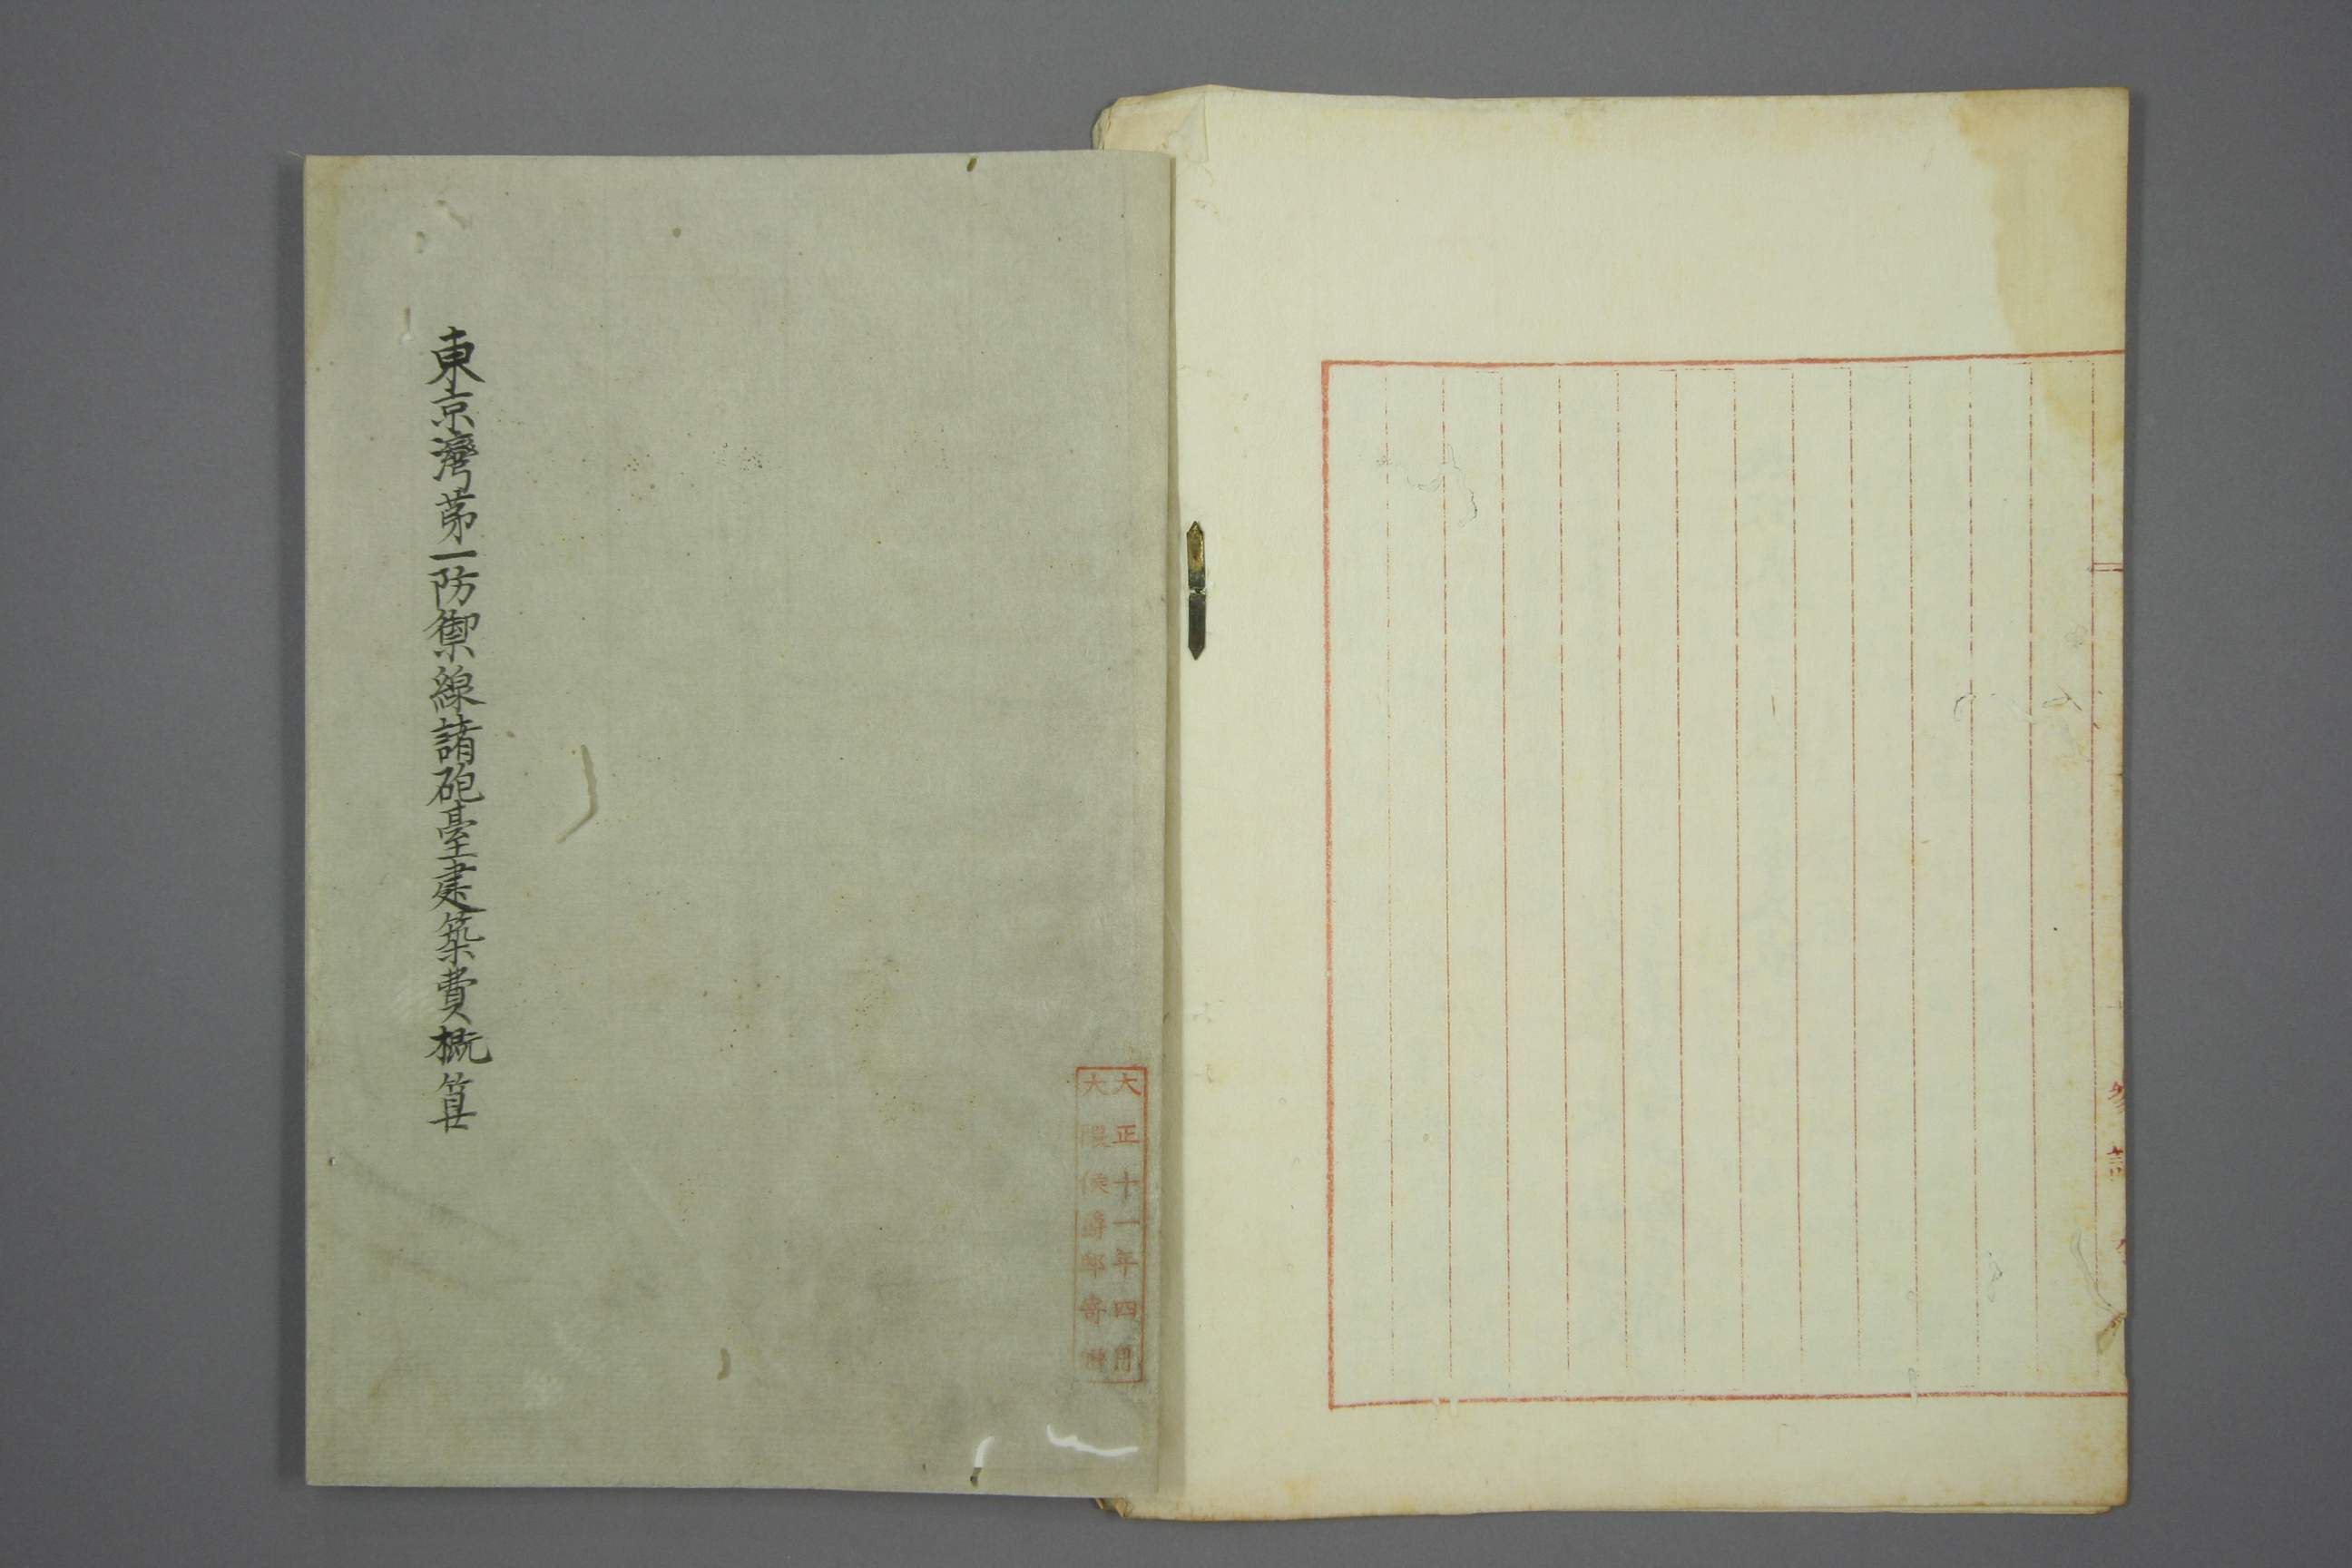 參謀
大正十一年四月
大隈侯爵邸寄贈
東京灣第一防禦線諸砲臺建築費概算